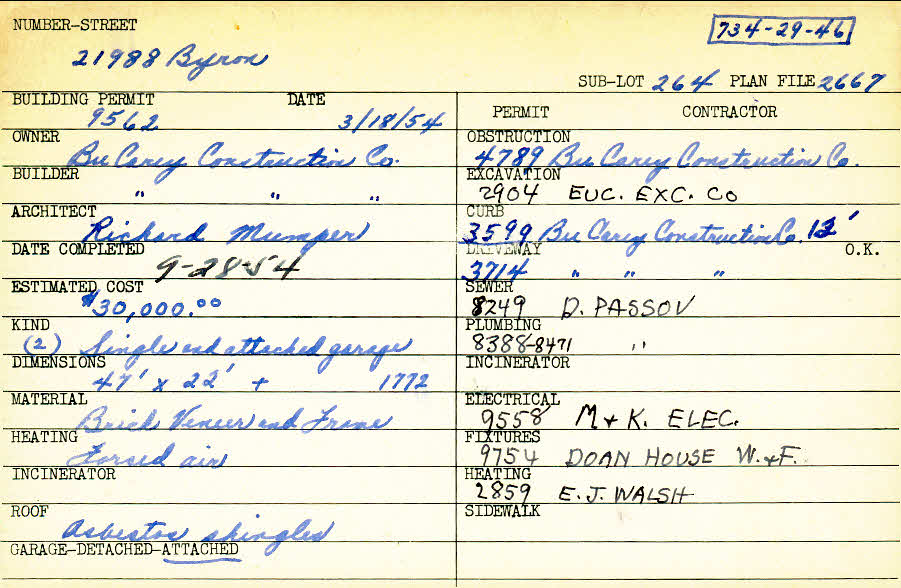 NUMBER-STREET
734-29-46
21988 Byron
SUB-LOT 264 PLAN FILE 2667
BUILDING PERMIT DATE
9562 3/18/54
OWNER
Bu Carey Construction Co.
BUILDER
" " "
ARCHITECT
Richard Mumper
DATE COMPLETED
9-28-54
ESTIMATED COST
$30,000.00
KIND
(2) Single and attached garage
DIMENSIONS
47' x 22' + 1772
MATERIAL
Brick Veneer and Frame
HEATING
Forsed air
INCINERATOR
ROOF
Asbestos shingles
GARAGE-DETACHED-ATTACHED
PERMIT CONTRACTOR
OBSTRUCTION
4789 Bu Carey Construction Co.
EXCAVATION
2904 EUC. EXC. CO
CURB
3599 Bu Carey Construction Co. 12'
DRIVEWAY O.K.
3714 " " "
SEWER
8249 D. PASSOV
PLUMBING
8388-8471 "
INCINERATOR
ELECTRICAL
9558 M + K. ELEC.
FIXTURES
9754 DOAN HOUSE W. + F.
HEATING
2859 E.J. WALSH
SIDEWALK